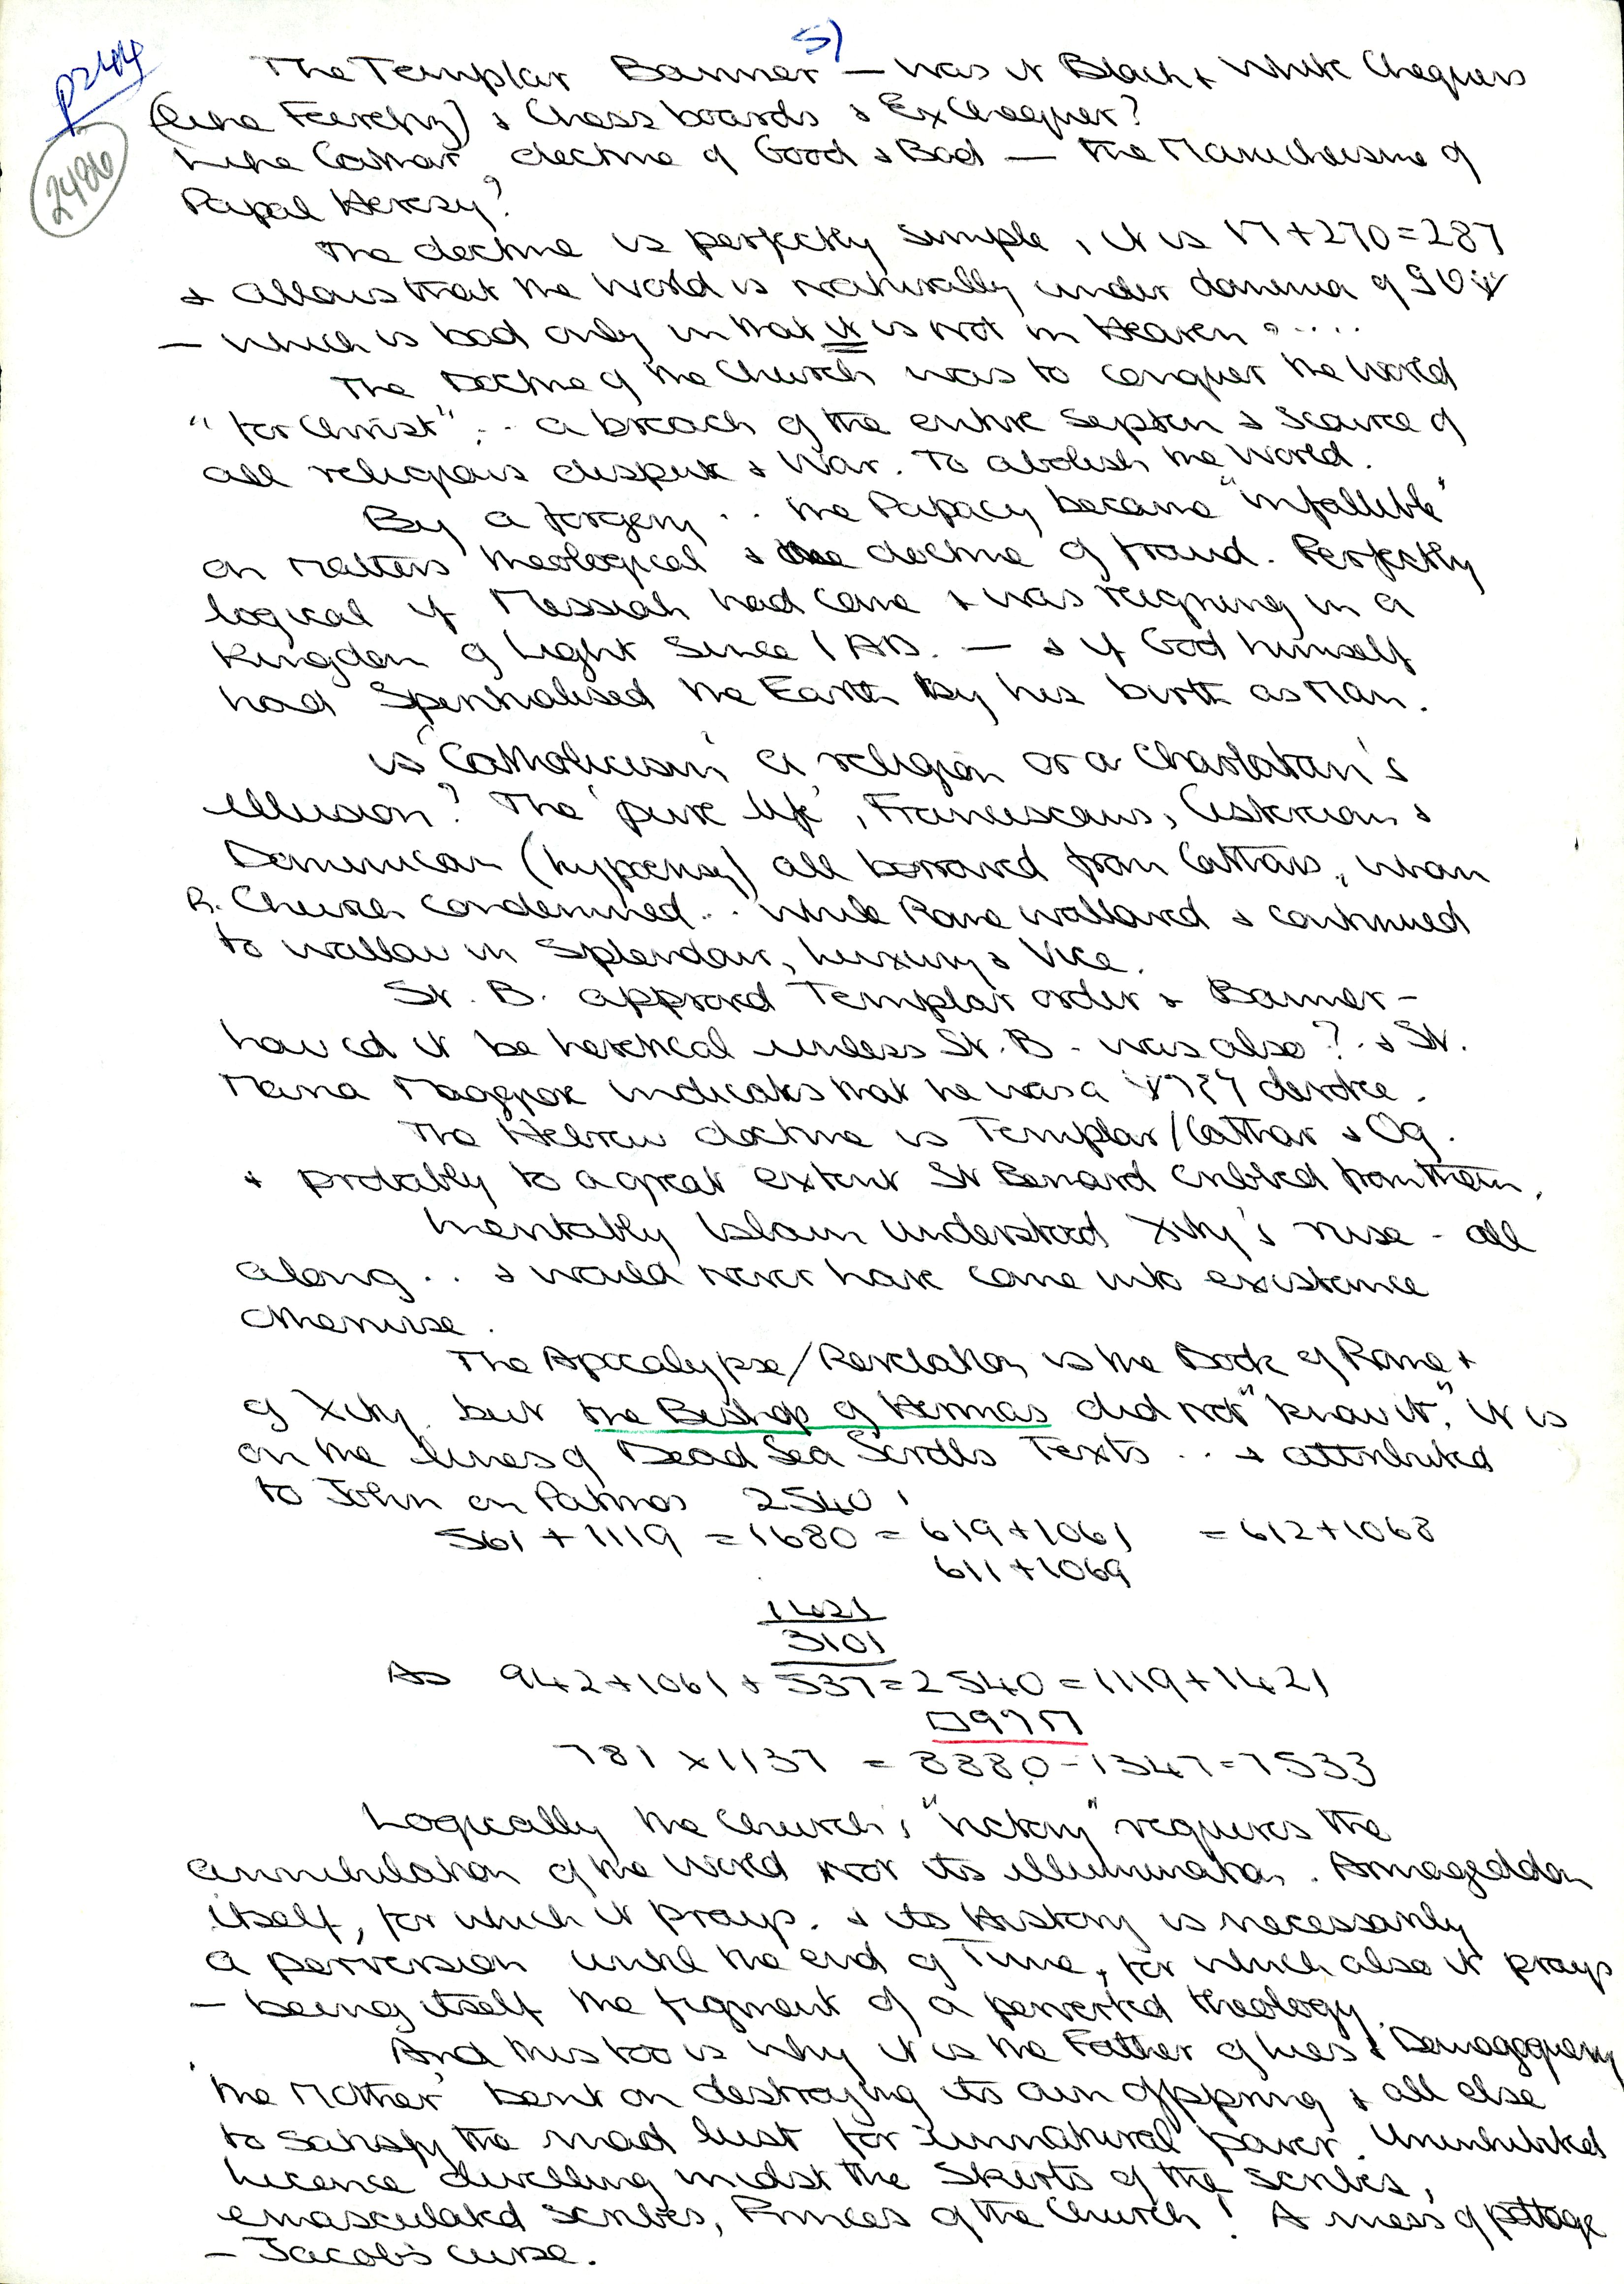 5)
p244
2486
The Templar Banner — was it Black & White Chequers
& Chess boards & ExChequer?
like Cathar doctrine of Good & Bad — the Manicheisme of
Papal Heresy?
The doctrine is perfectly simple, it is 17+270=287
& allows that the World is naturally under dominion of
— which is bad only in that it is not in Heaven .....
The Doctrine of the Church was to conquer the World
"for Christ", .. a breach of the entire & source of
all religious dispute & War. To abolish the World.
By a forgery .. the Papacy became "infallible"
on Matters theological & the doctrine of fraud. Perfectly
logical if Messiah had come & was reigning in a
Kingdom of Light Since 1 AD. — & if God himself
had Spiritualised the Earth By his birth as Man.
is 'Catholicism' a religion or a Charlatan's
illusion? The 'pure life', Franciscans, Cistercians &
Dominican (hypocrisy) all borrowed from Cathars, whom
R. Church condemned .. while Rome wallowed & continued
to wallow in Splendour, Luxury & Vice.
St. B. approved Templar order & Banner –
how cd it be heretical unless St. B. was also? & St.
Maria Maggiore indicates that he was a devotee.
The Hebrew doctrine is Templar/Cathar & Og.
& probably to a great extent St Bernard cribbed from them.
Inevitably Islam understood Xity's ruse – all
along .. & would never have come into existence
otherwise.
The Apocalypse/Revelation is the Book of Rome &
of Xity but the Bishop of Hermas did not "know it", it is
on the lines of Dead Sea Scrolls Texts .. & attributed
to John on Patmos 2540
561 + 1119 = 1680 = 619+1061 = 612+1068
611+1069
1421
3101
As 942+1061+537=2540=1119+1421
םףךח
781 × 1137 = 8880-1347=7533
Logically the Church's "victory" requires the
annihilation of the World not its illumination. Armageddon
itself, for which it prays. & its History is necessarily
a perversion until the end of Time, for which also it prays
— being itself the figment of a perverted theology.
And this too is why it is the Father of lies & Demagoguery
'the Mother' bent on destroying its own offspring & all else
to satisfy the mad lust for unnatural power. Uninhibited
licence dwelling midst the Skirts of the scribes,
emasculated scribes, Princes of the Church! A mess of pottage
— Jacob's curse.